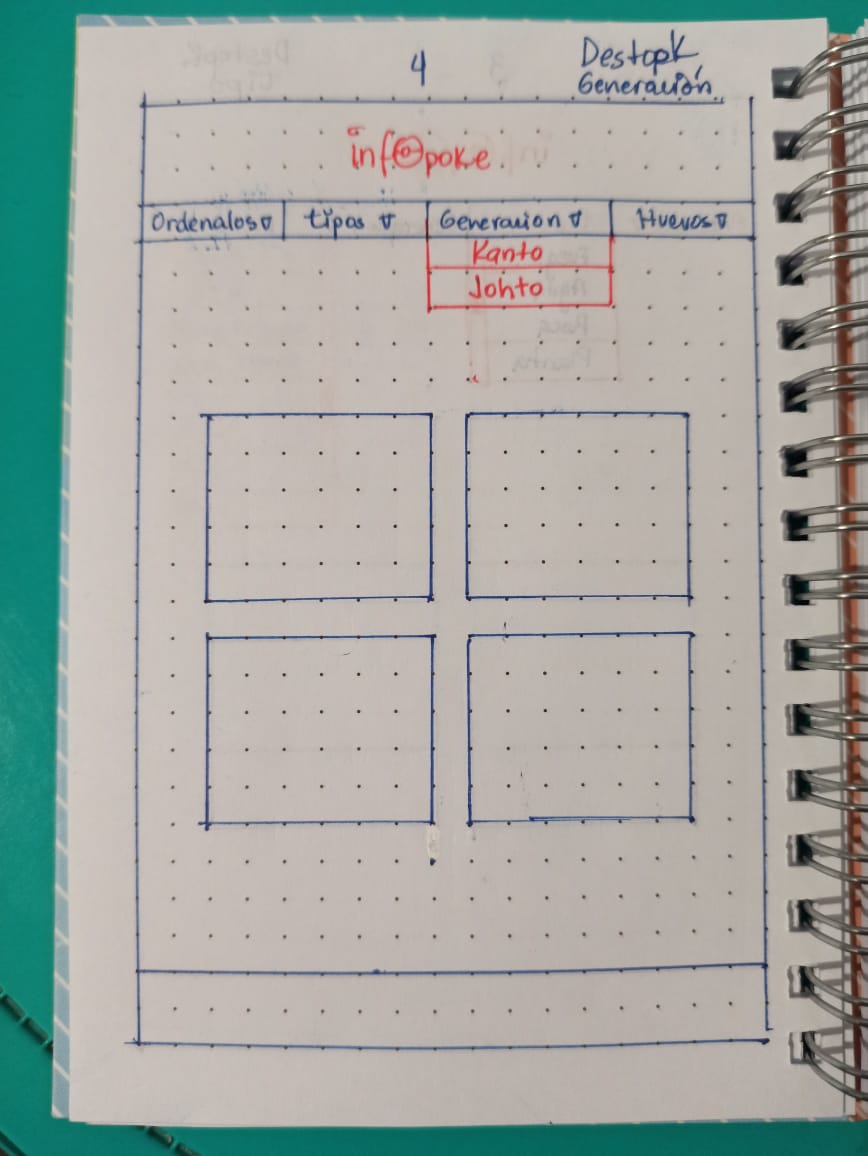 4
Destopk
Generación
infopoke
Ordénalos ▽ tipos ▽ Generacion ▽ Huevos ▽
Kanto
Johto